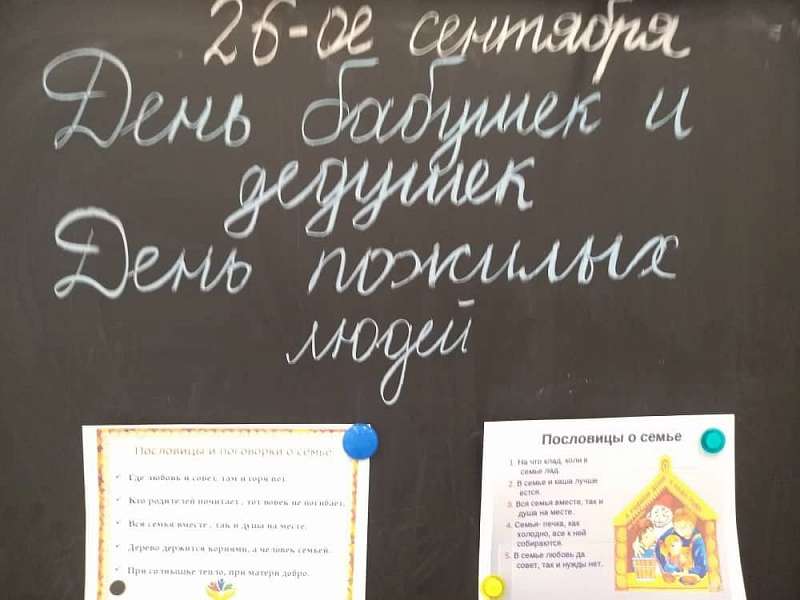 26-ое сентября
День бабушек и
дедушек
День пожилых
людей
Пословицы и поговорки о семье
Где любовь и совет, там и горя нет.
Кто родителей почитает, тот вовек не погибает.
Вся семья вместе, так и душа на месте.
Дерево держится корнями, а человек семьей.
При солнышке тепло, при матери добро.
Пословицы о семье
1. На что клад, коли в
семье лад.
2. В семье и каша гуще
3. Вся семья вместе, так и
душа на месте.
4. Семья- печка, как
холодно, все к ней
собираются.
5. В семье любовь да
совет, так и нужды нет.